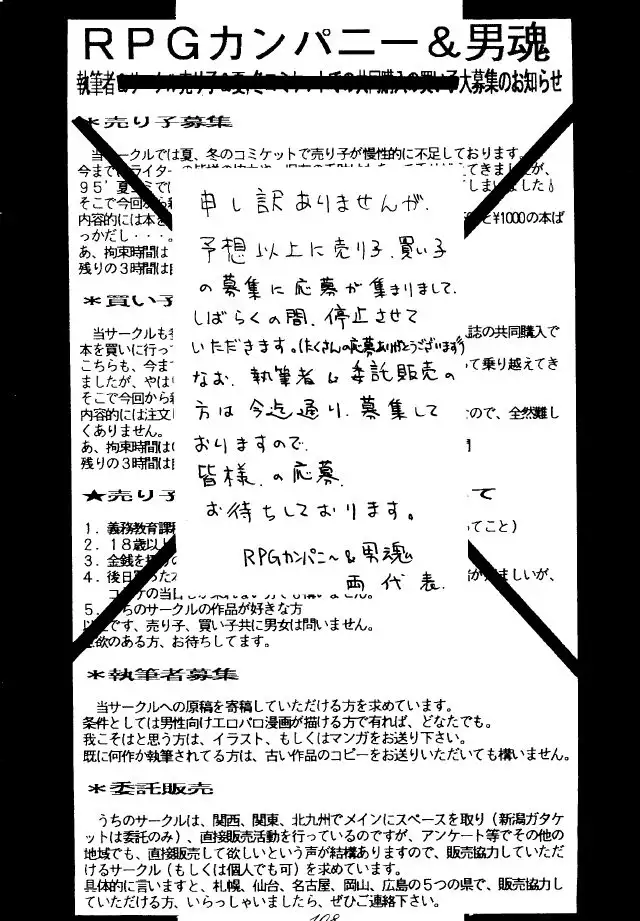 RPGカンパニー＆男魂
執筆者
大募集のお知らせ
＊売り子募集
当サークルでは夏、冬のコミケットで売り子が慢性的に不足しております。
今まで
てきましたが、
95'夏
しまいました
そこで今回から
内容的には本を
と¥1000の本ば
っかだし・・・。
あ、拘束時間は
残りの３時間は
＊買い子
当サークルも
誌の共同購入で
本を買いに行っ
こちらも、今ま
て乗り越えてき
ましたが、やは
そこで今回から
内容的には注文
なので、全然難し
くありません。
あ、拘束時間は
残りの３時間は
★売り子
いて
１．義務教育課
ってこと）
２．１８歳以上
３．金銭を
４．後日
ましいが、
５．うちのサークルの作品が好きな方
以上です、売り子、買い子共に男女は問いません。
意欲のある方、お待ちしてます。
申し訳ありませんが、
予想以上に売り子、買い子
の募集に応募が集まりまして、
しばらくの間、停止させて
いただきます。(たくさんの応募ありがとうございます)
なお、執筆者&委託販売の
方は今迄通り、募集して
おりますので、
皆様、の応募、
お待ちしております。
RPGカンパニー&男魂
両代表.
＊執筆者募集
当サークルへの原稿を寄稿していただける方を求めています。
条件としては男性向けエロパロ漫画が描ける方で有れば、どなたでも。
我こそはと思う方は、イラスト、もしくはマンガをお送り下さい。
既に何作か執筆されてる方は、古い作品のコピーをお送りいただいても構いません。
＊委託販売
うちのサークルは、関西、関東、北九州でメインにスペースを取り（新潟ガタケ
ットは委託のみ）、直接販売活動を行っているのですが、アンケート等でその他の
地域でも、直接販売して欲しいという声が結構ありますので、販売協力していただ
けるサークル（もしくは個人でも可）を求めています。
具体的に言いますと、札幌、仙台、名古屋、岡山、広島の５つの県で、販売協力し
ていただける方、いらっしゃいましたら、ぜひご連絡下さい。
108